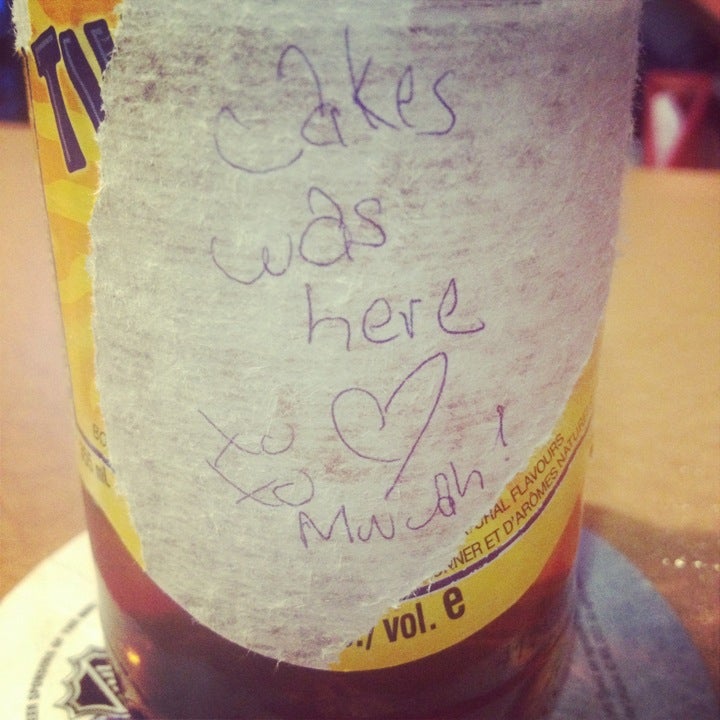 Jakes
was
here
xo
xo
Muuah!
NATURAL FLAVOURS
ET D'ARÔMES NATUR
/vol. e